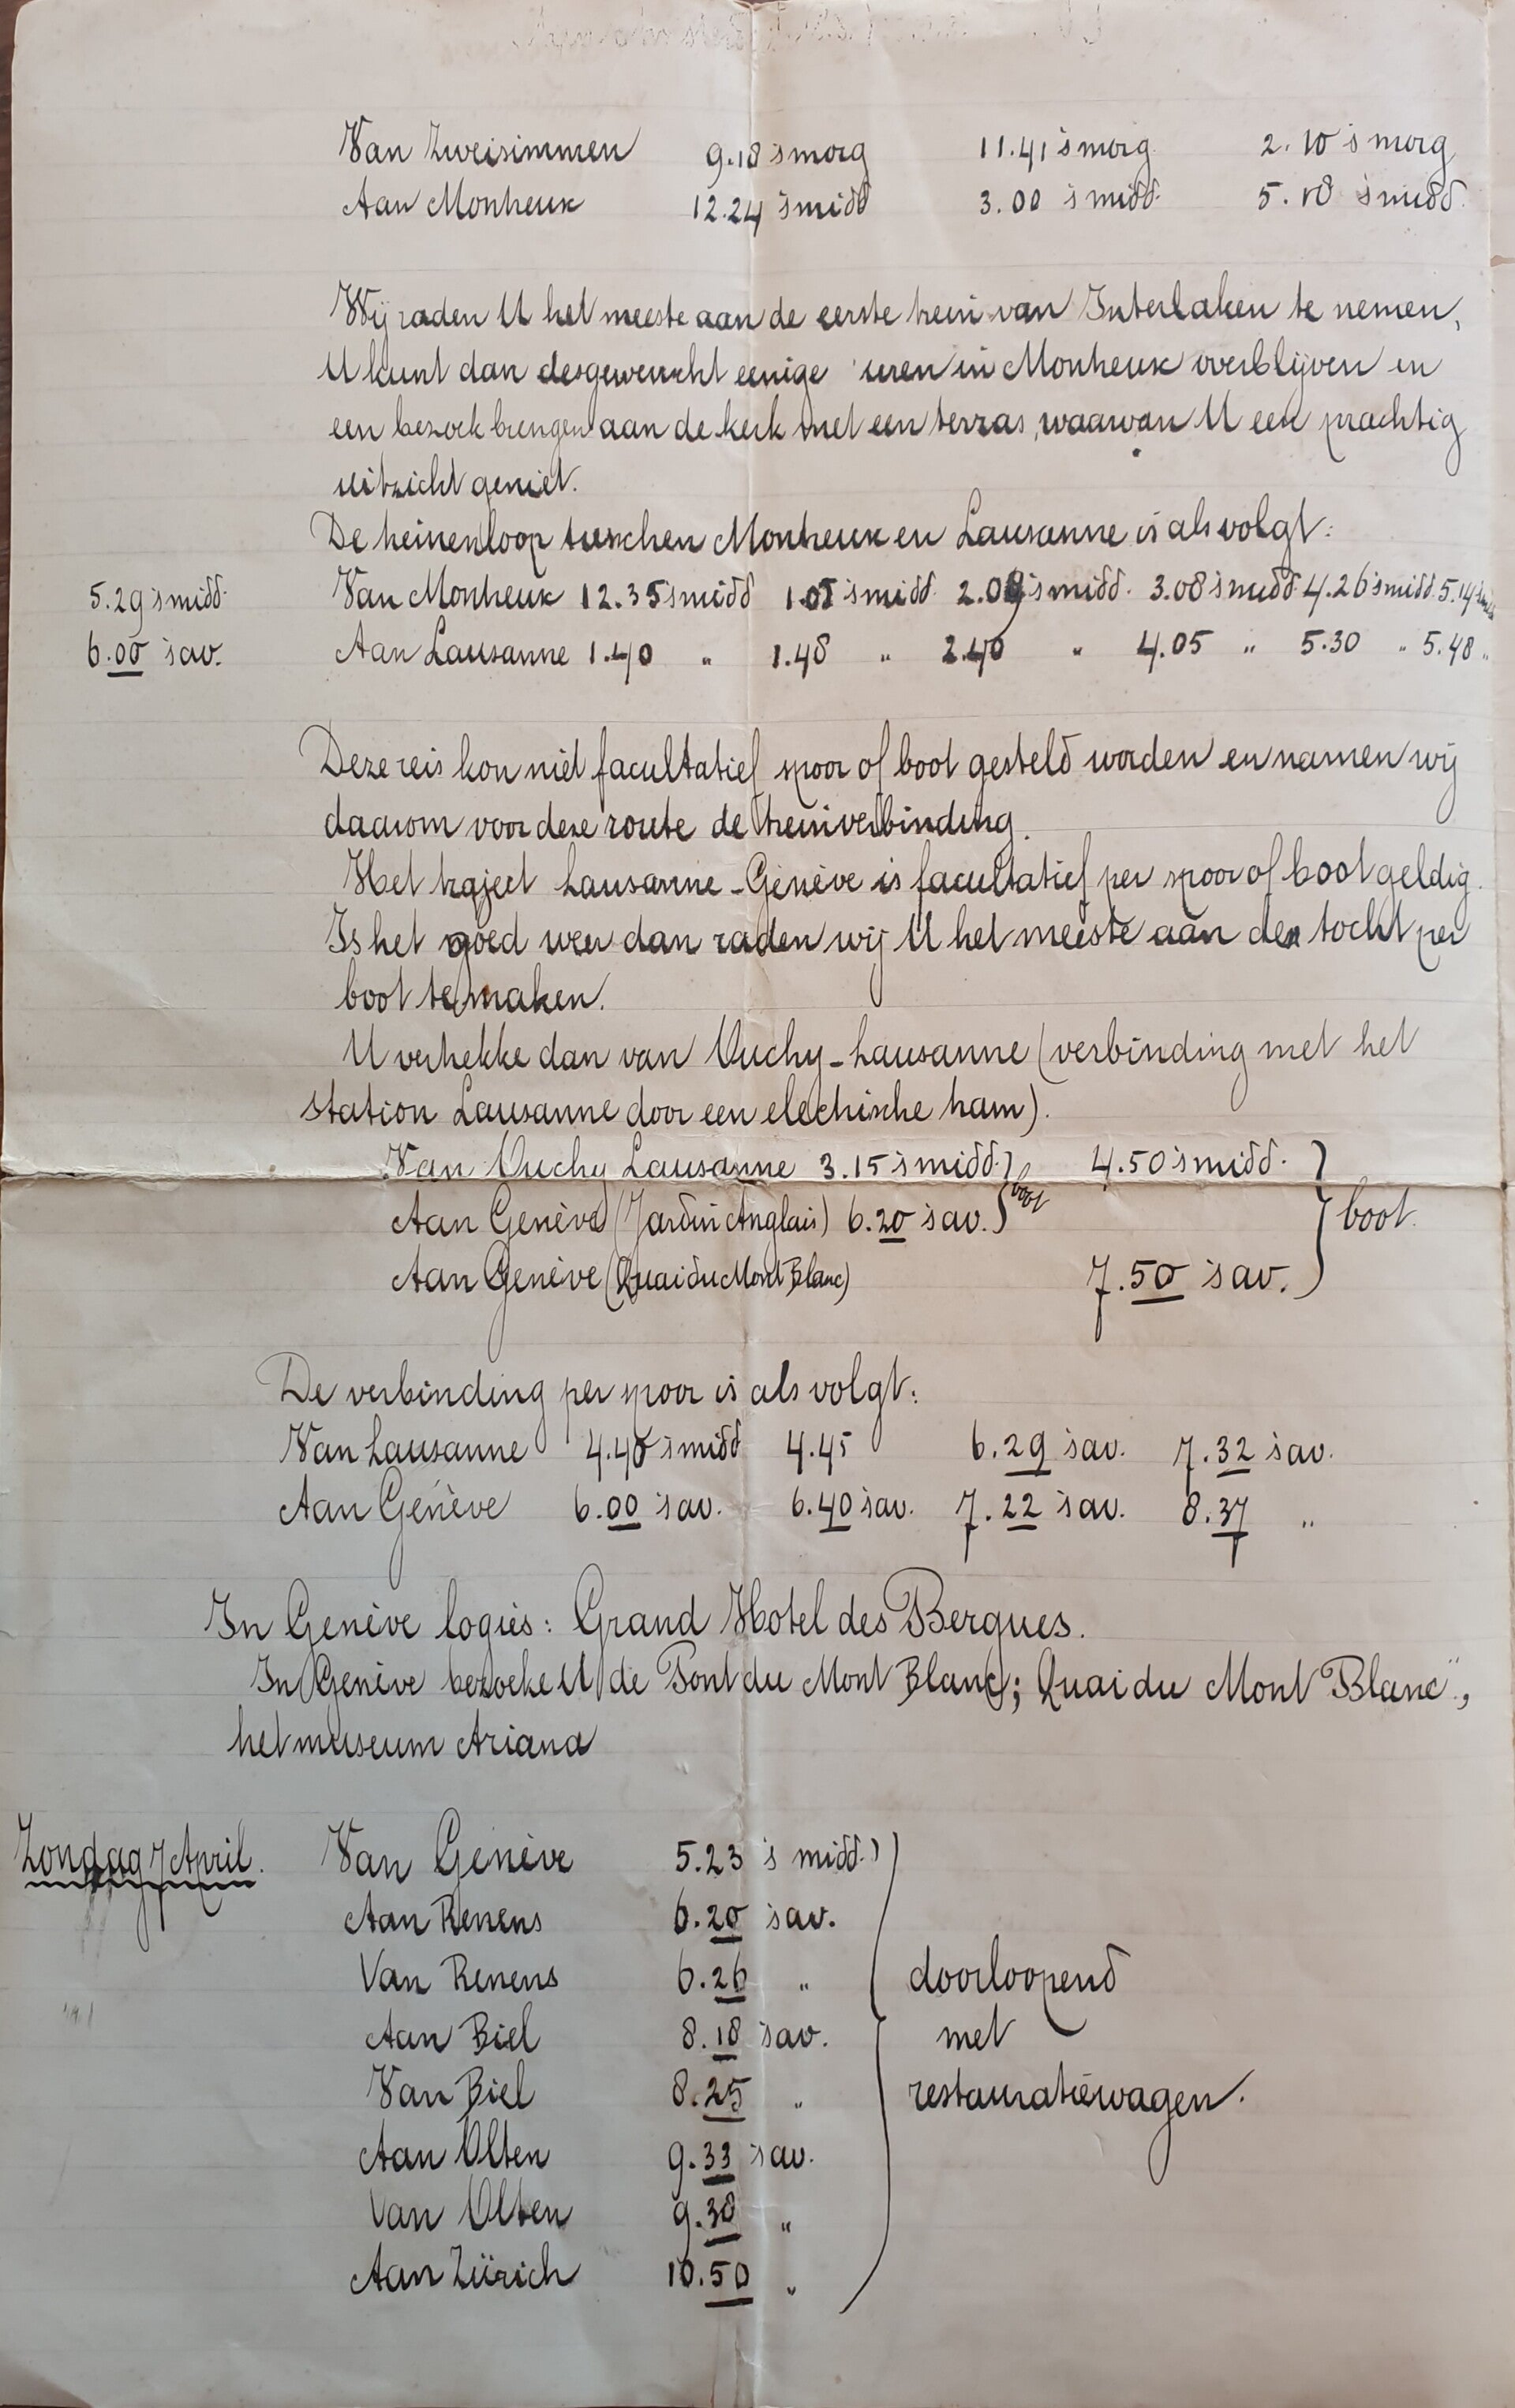 Van Zweisimmen 9.18 'smorg 11.41 'smorg 2.10 'smorg
Aan Montreux 12.24 'smidd 3.00 'smidd. 5.18 'smidd.
Wij raden U het meeste aan de eerste trein van Interlaken te nemen,
U kunt dan desgewenscht eenige uren in Montreux overblijven en
een bezoek brengen aan de kerk met een terras, waarvan U een prachtig
uitzicht geniet.
De treinenloop tusschen Montreux en Lausanne is als volgt:
5.29 'smidd. Van Montreux 12.35 'smidd 1.05 'smidd. 2.09 'smidd. 3.08 'smidd. 4.26 'smidd. 5.14 'smidd
6.00 'sav. Aan Lausanne 1.40 " 1.48 " 2.40 " 4.05 " 5.30 " 5.48 "
Deze reis kon niet facultatief spoor of boot gesteld worden en namen wij
daarom voor deze route de treinverbinding.
Het traject Lausanne - Genève is facultatief per spoor of boot geldig.
Is het goed weer dan raden wij U het meeste aan den tocht per
boot te maken.
U vertrekke dan van Ouchy - Lausanne (verbinding met het
station Lausanne door een electrische tram).
Van Ouchy Lausanne 3.15 'smidd. 4.50 'smidd.
Aan Genève (Jardin Anglais) 6.20 'sav. boot boot.
Aan Genève (Quai du Mont Blanc) 7.50 'sav.
De verbinding per spoor is als volgt:
Van Lausanne 4.40 'smidd 4.45 6.29 'sav. 7.32 'sav.
Aan Genève 6.00 'sav. 6.40 'sav. 7.22 'sav. 8.37 "
In Genève logies: Grand Hotel des Bergues.
In Genève bezoeke U de Pont du Mont Blanc; Quai du Mont Blanc",
het museum Ariana
Zondag 7 April. Van Genève 5.23 's midd.
Aan Renens 6.20 'sav.
Van Renens 6.26 " doorloopend
Aan Biel 8.18 'sav. met
Van Biel 8.25 " restauratiewagen.
Aan Olten 9.33 'sav.
Van Olten 9.38 "
Aan Zürich 10.50 "